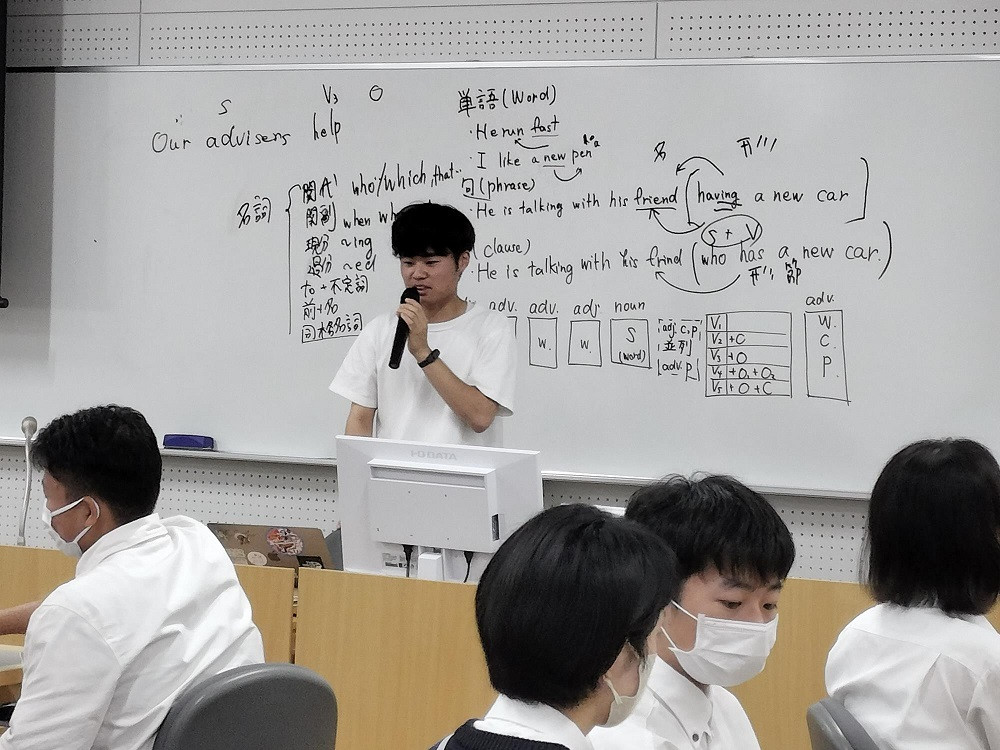 S V₃ O
Our advisers help
単語(Word)
・He run fast
・I like a new pen
句(phrase)
・He is talking with his friend [having a new car]
名 形
S + V
(clause)
・He is talking with his frind (who has a new car.)
形 節
名詞
関代 who/which, that
関副 when wh
現分 ~ing
過分 ~ed
to+不定詞
前+名
同格名詞
adv. adv. adj. noun
W. W. S
(word)
adj. C, P,
並列
adv. P
V₁
V₂ +C
V₃ +O
V₄ +O₁+O₂
V₅ +O+C
adv.
W.
C.
P.
I-O DATA